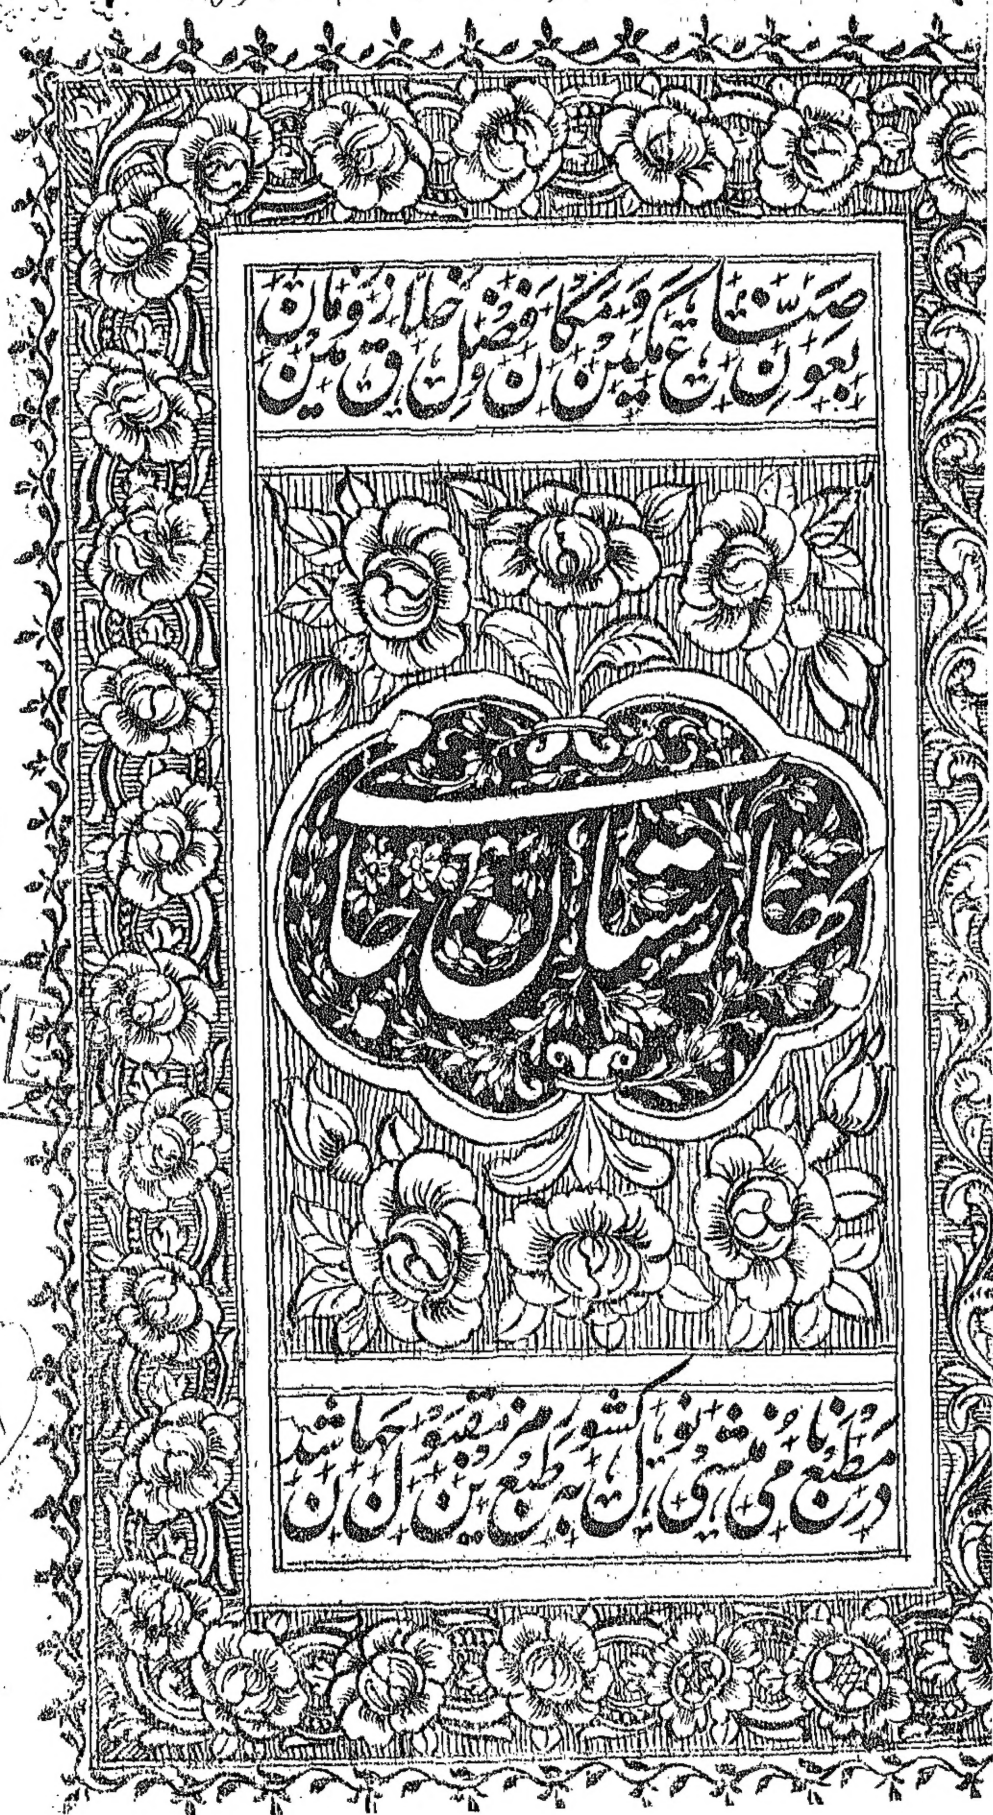 بعون صناع مکین و مکان و فضل خلاق زمین و زمان
بهارستان جامی
در مطبع نامی منشی نولکشور طبع مزین مقبول جهان شد